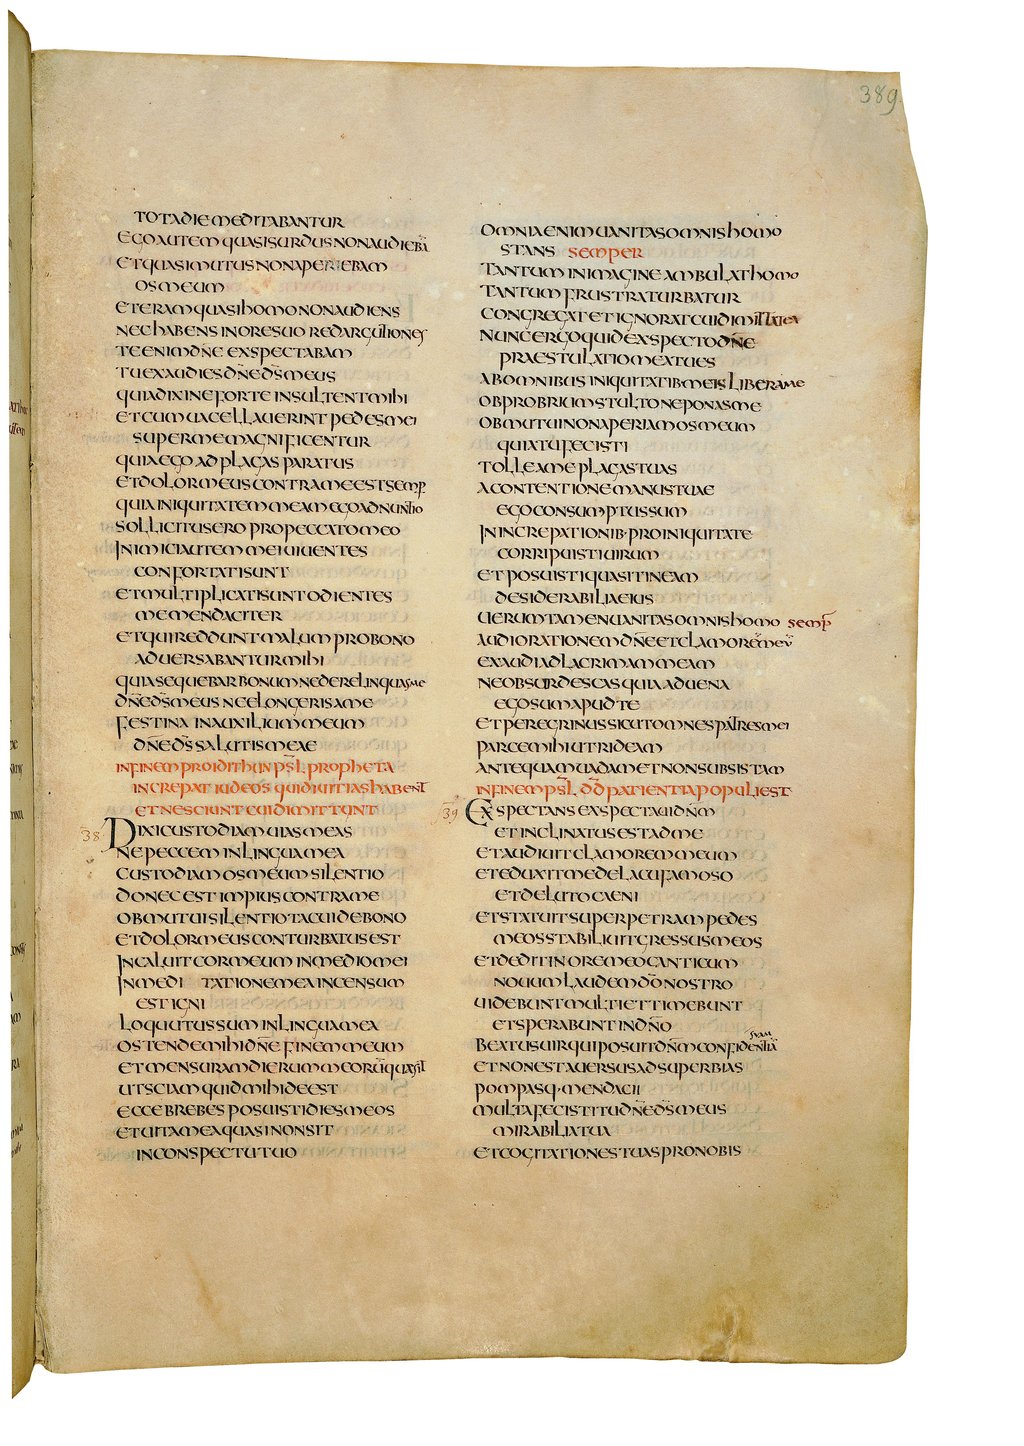 389
TOTA DIE MEDITABANTUR
EGO AUTEM QUASI SURDUS NON AUDIEBĀ
ET QUASI MUTUS NON APERIEBAM
OS MEUM
ET ERAM QUASI HOMO NON AUDIENS
NEC HABENS IN ORE SUO REDARGUTIONES
TE ENIM DN̄E EXSPECTABAM
TU EXAUDIES DN̄E DS̄ MEUS
QUIA DIXI NE FORTE INSULTENT MIHI
ET CUM UACELLAUERINT PEDES MEI
SUPER ME MAGNIFICENTUR
QUIA EGO AD PLAGAS PARATUS
ET DOLOR MEUS CONTRA ME EST SEMP
QUIA INIQUITATEM MEAM EGO ADNUNTIO
SOLLICITUS ERO PRO PECCATO MEO
INIMICI AUTEM MEI UIUENTES
CONFORTATI SUNT
ET MULTIPLICATI SUNT ODIENTES
ME MENDACITER
ET QUI REDDUNT MALUM PRO BONO
ADUERSABANTUR MIHI
QUIA SEQUEBAR BONUM NE DERELINQUAS ME
DN̄E DS̄ MEUS NE ELONGERIS A ME
FESTINA IN AUXILIUM MEUM
DN̄E DS̄ SALUTIS MEAE
IN FINEM PRO IDITHUN PSL PROPHETA
INCREPAT IUDEOS QUI DIUITIAS HABENT
ET NESCIUNT CUI DIMITTUNT
38 DIXI CUSTODIAM UIAS MEAS
NE PECCEM IN LINGUA MEA
CUSTODIAM OS MEUM SILENTIO
DONEC EST IMPIUS CONTRA ME
OBMUTUI SILENTIO TACUI DE BONO
ET DOLOR MEUS CONTURBATUS EST
INCALUIT COR MEUM IN MEDIO MEI
IN MEDITATIONE MEA INCENSUM
EST IGNI
LOQUUTUS SUM IN LINGUA MEA
OSTENDE MIHI DN̄E FINEM MEUM
ET MENSURAM DIERUM MEORŪ QUAE SIT
UT SCIAM QUID MIHI DEEST
ECCE BREBES POSUISTI DIES MEOS
ET UITA MEA QUASI NON SIT
IN CONSPECTU TUO
OMNIA ENIM UANITAS OMNIS HOMO
STANS SEMPER
TANTUM IN IMAGINE AMBULAT HOMO
TANTUM FRUSTRA TURBATUR
CONGREGAT ET IGNORAT CUI DIMITTAT EA
NUNC ERGO QUID EXSPECTO DN̄E
PRAESTULATIO MEA TU ES
AB OMNIBUS INIQUITATIB MEIS LIBERA ME
OBPROBRIUM STULTO NE PONAS ME
OBMUTUI NON APERIAM OS MEUM
QUIA TU FECISTI
TOLLE A ME PLAGAS TUAS
A CONTENTIONE MANUS TUAE
EGO CONSUMPTUS SUM
IN INCREPATIONIB· PRO INIQUITATE
CORRIPUISTI UIRUM
ET POSUISTI QUASI TINEAM
DESIDERABILIA EIUS
UERUMTAMEN UANITAS OMNIS HOMO SEMP
AUDI ORATIONEM DN̄E ET CLAMORĒ MEŪ
EXAUDI AD LACRIMAM MEAM
NE OBSURDESCAS QUIA ADUENA
EGO SUM APUD TE
ET PEREGRINUS SICUT OMNES PATRES MEI
PARCE MIHI UT RIDEAM
ANTEQUAM UADAM ET NON SUBSISTAM
IN FINEM PSL DD PATIENTIA POPULI EST
39 EXSPECTANS EXSPECTAUI DN̄M
ET INCLINATUS EST AD ME
ET AUDIUIT CLAMOREM MEUM
ET EDUXIT ME DE LACU FAMOSO
ET DE LUTO CAENI
ET STATUIT SUPER PETRAM PEDES
MEOS STABILIUIT GRESSUS MEOS
ET DEDIT IN ORE MEO CANTICUM
NOUUM LAUDEM DO NOSTRO
UIDEBUNT MULTI ET TIMEBUNT
ET SPERABUNT IN DN̄O
BEATUS UIR QUI POSUIT DN̄M CONFIDENTIĀ SUAM
ET NON EST AUERSUS AD SUPERBIAS
POMPASQ· MENDACII
MULTA FECISTI TU DN̄E DS̄ MEUS
MIRABILIA TUA
ET COGITATIONES TUAS PRO NOBIS